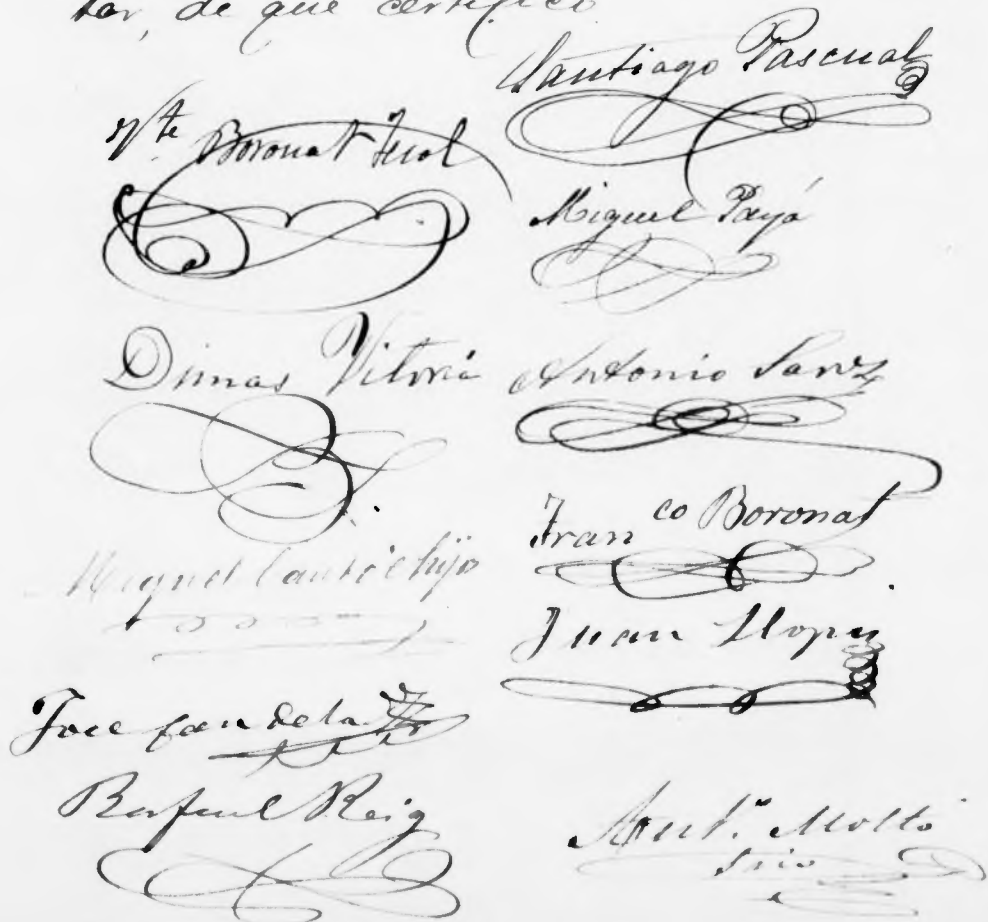 tar, de que certifico
Santiago Pascual
Vte Boronat Terol
Miguel Payá
Dimas Vitoria
Antonio Sanz
Franco Boronat
Miguel hijo
Juan Llopis
Jose Candela
Rafael Reig
Antº Moltó
Srio